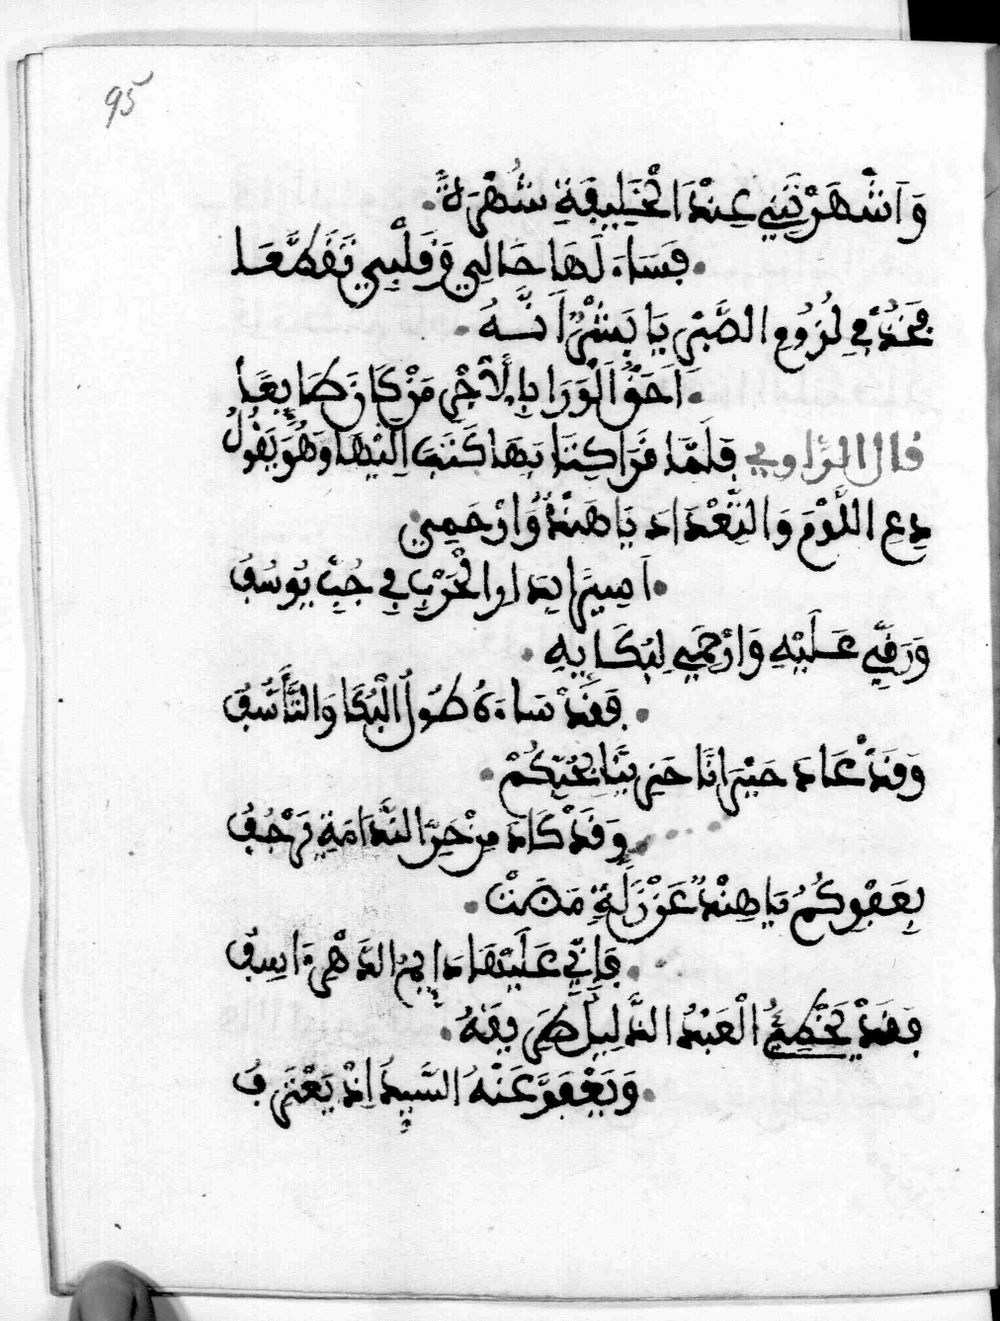 95
وَاَشْهَرْتَنِي عِنْدَ الْخَلِيفَةِ شُهْرَةً
فَسَاءَ لَهَا حَالِي وَقَلْبِي تَقَطَّعَا
فَخُذْ فِي لُزُومِ الصَّبْرِ يَا بِشْرُ اَنَّهُ
اَحَقُّ الْوَرَا بِالْاَجْرِ مَنْ كَانَ طَايِعَا
قال الراوي فَلَمَّا قَرَا كِتَابَهَا كَتَبَ اِلَيْهَا وَهُوَ يَقُولُ
دِعِ اللَّوْمَ وَالتِّعْدَادَ يَا هِنْدُ وَارْحَمِي
اَسِيرًا بِدَارِ الْحَرْبِ فِي جُبِّ يُوسُفِ
وَرَقِّي عَلَيْهِ وَارْحَمِي لِبُكَايِهِ
فَقَدْ سَاءَهُ طُولُ الْبُكَا وَالتَّأَسُّفِ
وَقَدْ عَادَ حَيْرَانًا حَزِينًا بِحُبِّكُمْ
وَقَدْ كَادَ مِنْ حَرِّ النَّدَامَةِ يَرْجُفُ
بِعَفْوِكُمُ يَا هِنْدُ عَنْ زَلَّةٍ مَضَتْ
فَاِنِّي عَلَيْهَا دَايِمُ الدَّهْرِ ءَاسِفُ
فَقَدْ يُخْطِئُ الْعَبْدُ الذَّلِيلُ طَرِيقَهُ
وَيَعْفُو عَنْهُ السَّيِّدُ اِذْ يَعْتَرِفُ